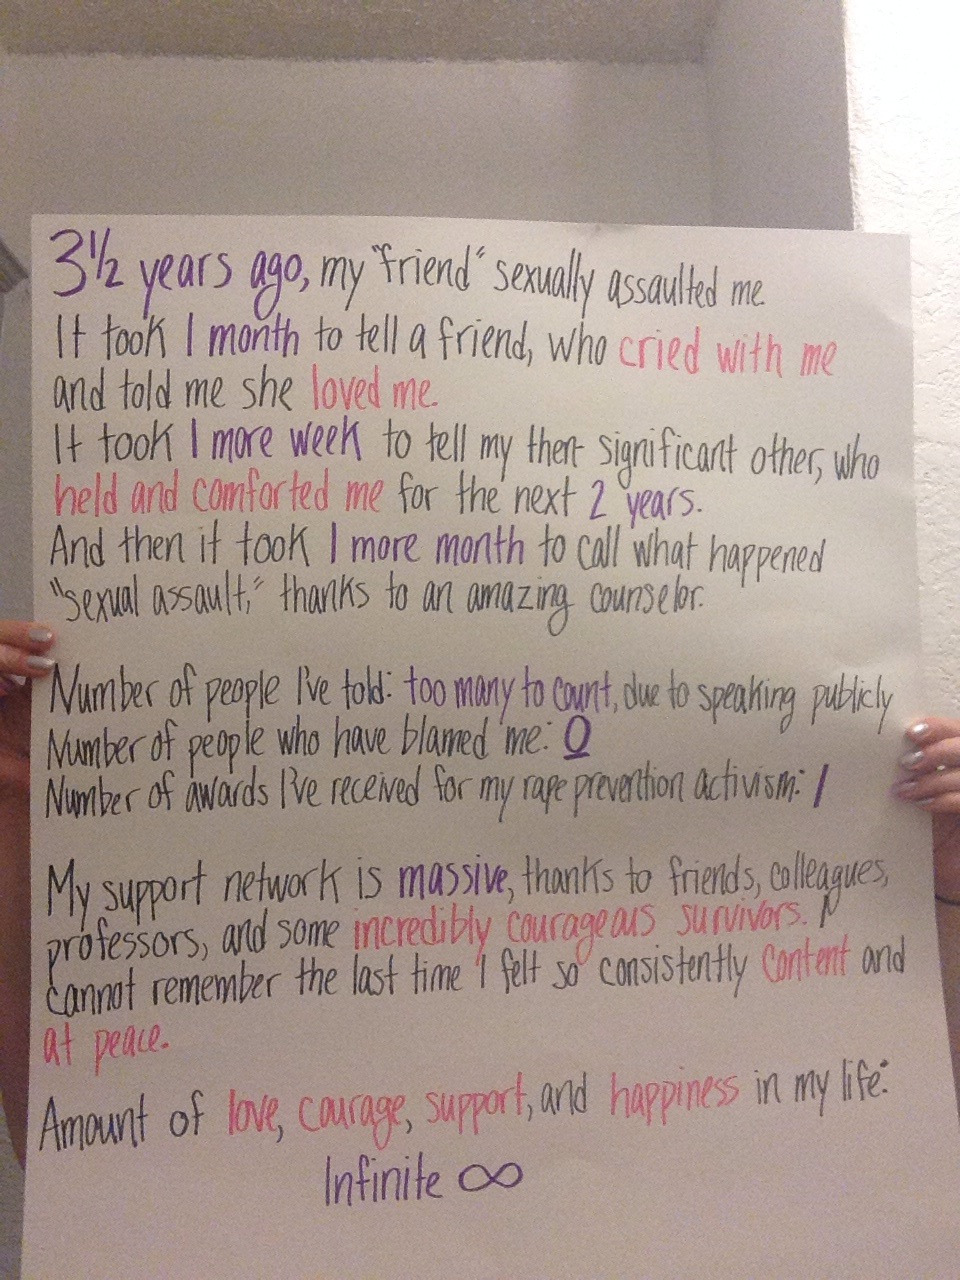 3½ years ago, my "friend" sexually assaulted me.
It took 1 month to tell a friend, who cried with me
and told me she loved me.
It took 1 more week to tell my then-significant other, who
held and comforted me for the next 2 years.
And then it took 1 more month to call what happened
"sexual assault," thanks to an amazing counselor.
Number of people I've told: too many to count, due to speaking publicly
Number of people who have blamed me: 0
Number of awards I've received for my rape prevention activism: 1
My support network is massive, thanks to friends, colleagues,
professors, and some incredibly courageous survivors. I
cannot remember the last time I felt so consistently content and
at peace.
Amount of love, courage, support, and happiness in my life:
Infinite ∞